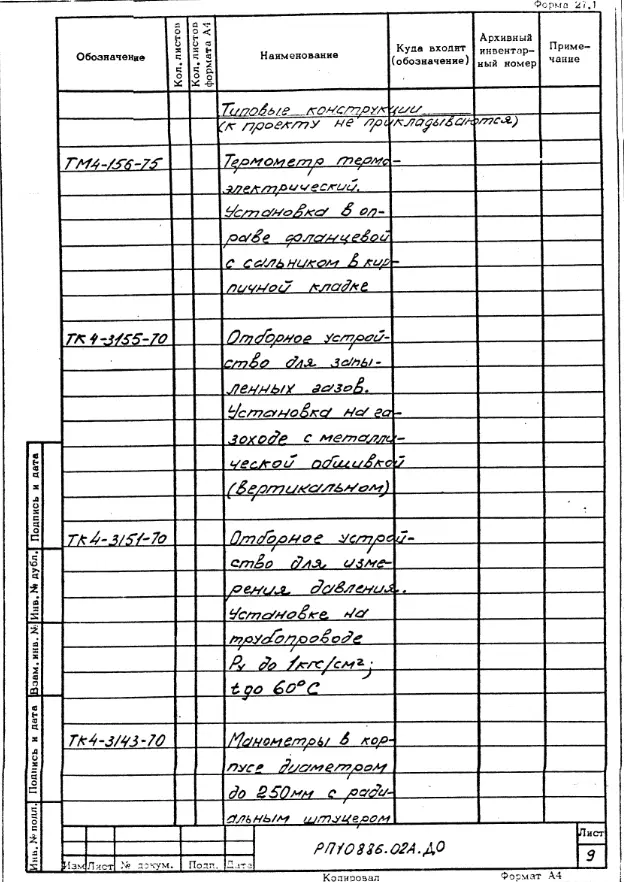 Форма 27.1
Обозначение
Кол. листов
Кол. листов формата А4
Наименование
Куда входит (обозначение)
Архивный инвентар-
ный номер
Приме-
чание
Типовые конструкции
(к проекту не прикладываются)
ТМ4-156-75 Термометр термо-
электрический.
Установка в оп-
раве фланцевой
с сальником в кир-
пичной кладке
ТК4-3155-70 Отборное устрой-
ство для запы-
ленных газов.
Установка на га-
зоходе с металли-
ческой обшивкой
(вертикальном)
ТК4-3151-70 Отборное устрой-
ство для изме-
рения давления.
Установке на
трубопроводе
Ру до 1кгс/см2;
t до 60°С
ТК4-3143-70 Манометры в кор-
пусе диаметром
до 250мм с ради-
альным штуцером
Подпись и дата
Инв. № дубл.
Взам. инв. №
Подпись и дата
Инв. № подл.
Изм Лист № докум. Подп. Дата
РП10886.02А.ДО
Лист
9
Копировал Формат А4